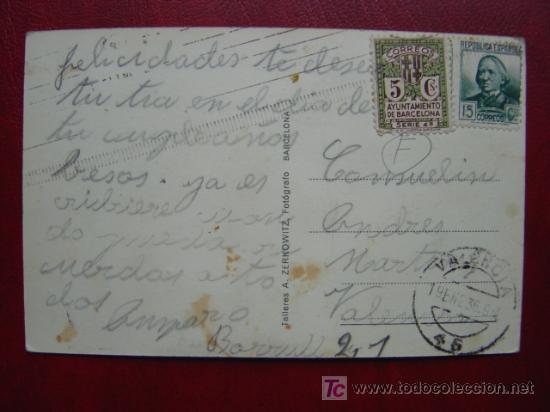 felicidades te desea
tu tia en el dia de
tu cumpleaños
besos. ya es
cribiere
do
cuerdos a to
dos
Amparo
Borrull
CORREOS
5 Cs
AYUNTAMIENTO
DE BARCELONA
SERIE 48
REPUBLICA ESPAÑOLA
15 Cts
CORREOS
F
Talleres A. ZERKOWITZ, Fotógrafo BARCELONA
Consuelin
Andres
Marti
Valencia
2,1
VALENCIA
19 ENE 36
46
TC todocoleccion.net